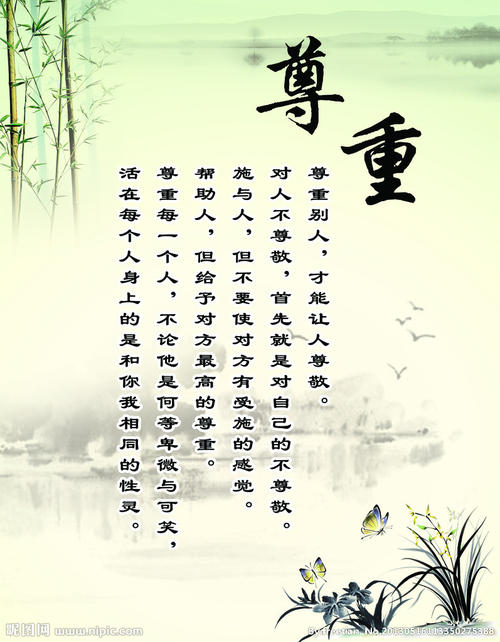 尊重
尊重别人，才能让人尊敬。
对人不尊敬，首先就是对自己的不尊敬。
施与人，但不要使对方有受施的感觉。
帮助人，但给予对方最高的尊重。
尊重每一个人，不论他是何等卑微与可笑，
活在每个人身上的是和你我相同的性灵。
昵图网 www.nipic.com